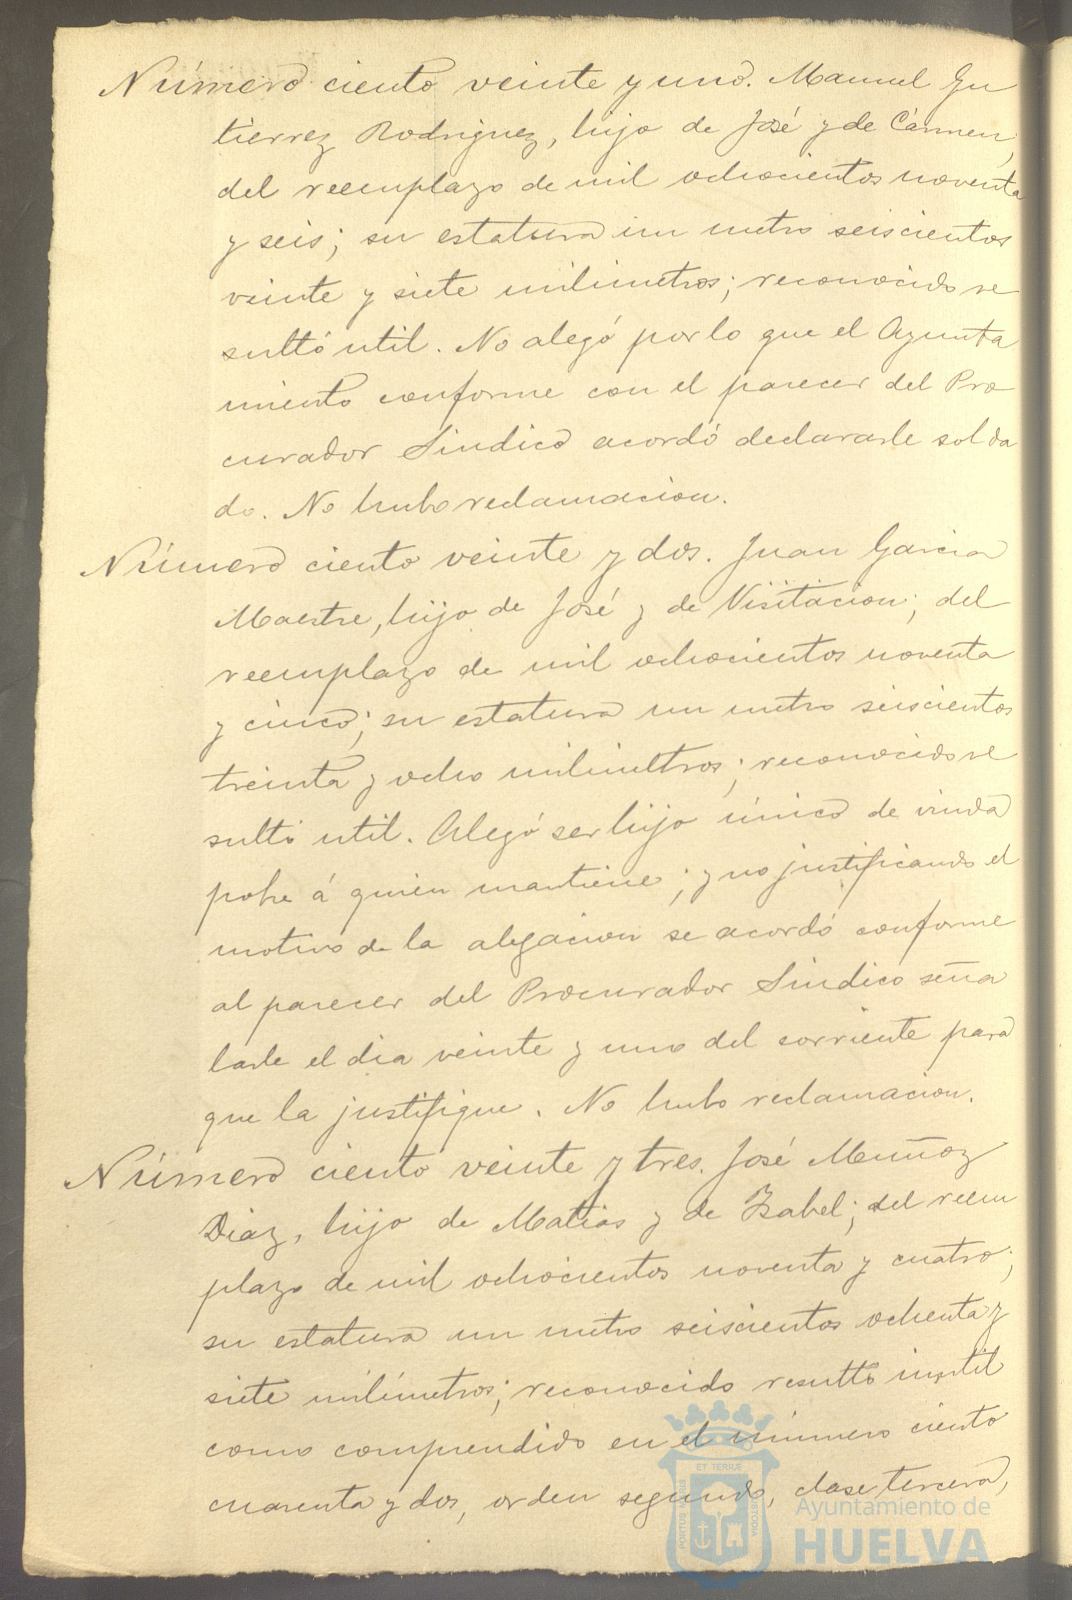 Número ciento veinte y uno. Manuel Gu
tierrez Rodriguez, hijo de José y de Cármen,
del reemplazo de mil ochocientos noventa
y seis; su estatura un metro seiscientos
veinte y siete milimetros; reconocido re
sultó util. No alegó por lo que el Ayunta
miento conforme con el parecer del Pro
curador Sindico acordó declararle solda
do. No hubo reclamacion.
Número ciento veinte y dos. Juan Garcia
Maestre, hijo de José y de Visitacion; del
reemplazo de mil ochocientos noventa
y cinco; su estatura un metro seiscientos
treinta y ocho milimetros; reconocido re
sultó util. Alegó ser hijo único de viuda
pobre á quien mantiene; y no justificando el
motivo de la alegacion se acordó conforme
al parecer del Procurador Sindico seña
larle el dia veinte y uno del corriente para
que la justifique. No hubo reclamacion.
Número ciento veinte y tres. José Muñoz
Diaz, hijo de Matias y de Isabel; del reem
plazo de mil ochocientos noventa y cuatro;
su estatura un metro seiscientos ochenta y
siete milímetros; reconocido resultó inutil
como comprendido en el número ciento
cuarenta y dos, orden segundo, clase tercera,
ET TERRÆ
PORTUS MARIS
CUSTODIA
Ayuntamiento de
HUELVA